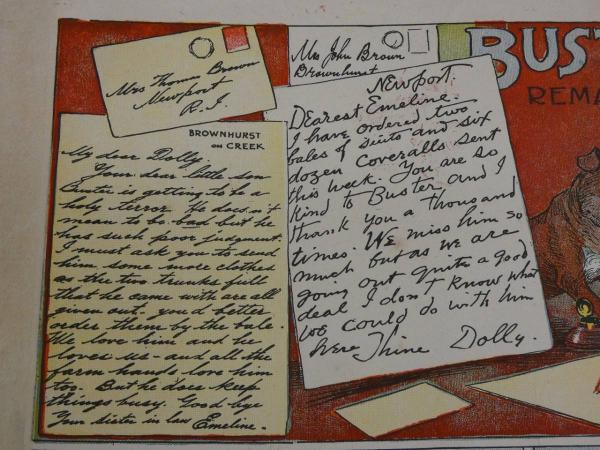 Mrs Thomas Brown
Newport
R. I.
BROWNHURST
ON CREEK
My dear Dolly.
Your dear little son
Buster is getting to be a
holy terror. He doesn't
mean to be bad but he
has such poor judgment.
I must ask you to send
him some more clothes
as the two trunks full
that he came with are all
given out. you'd better
order them by the bale.
We love him and he
loves us - and all the
farm hands love him
too. But he does keep
things busy. Good bye
Your sister in law Emeline.
Mrs John Brown
Brownhurst
Newport.
Dearest Emeline.
I have ordered two
bales of suits and six
dozen coveralls sent
this week. You are so
kind to Buster and I
thank you a thousand
times. We miss him so
much but as we are
going out quite a good
deal I don't know what
we could do with him
here Thine Dolly.
BUS
REMA